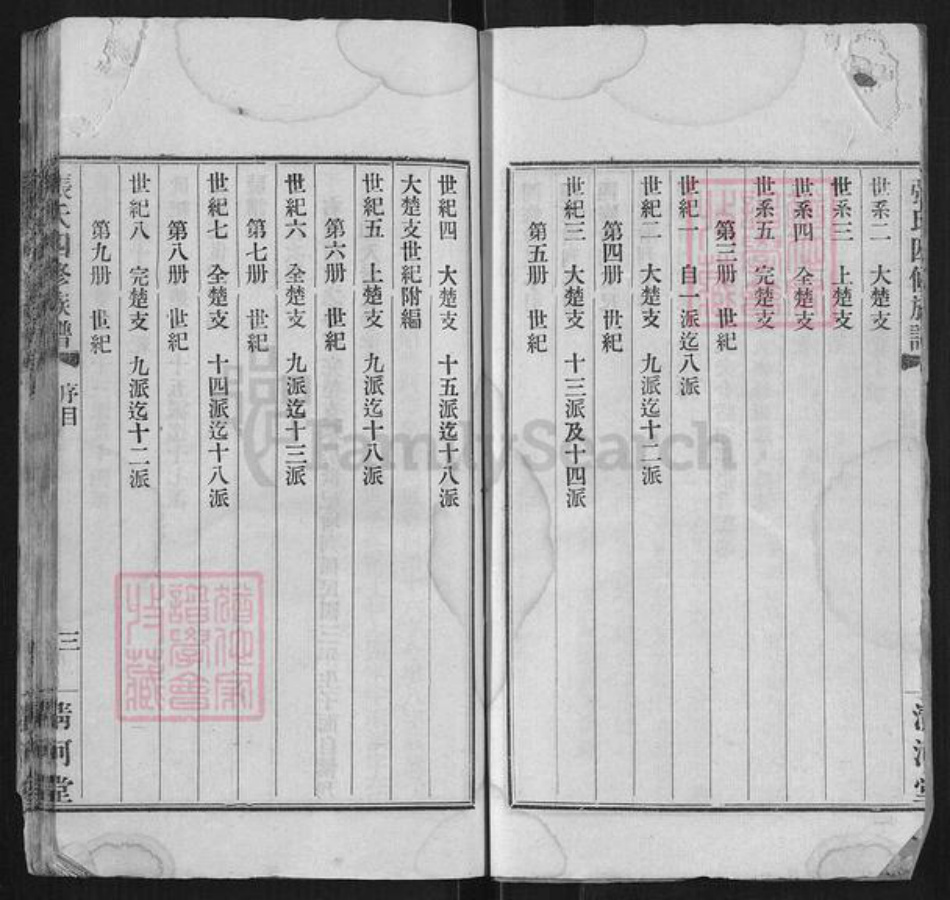 張氏四修族譜
清河堂
世系二　大楚支
世系三　上楚支
世系四　全楚支
世系五　完楚支
第三册　世紀
世紀一　自一派迄八派
世紀二　大楚支　九派迄十二派
第四册　世紀
世紀三　大楚支　十三派及十四派
第五册　世紀
世紀四　大楚支　十五派迄十八派
大楚支世紀附編
世紀五　上楚支　九派迄十八派
第六册　世紀
世紀六　全楚支　九派迄十三派
第七册　世紀
世紀七　全楚支　十四派迄十八派
第八册　世紀
世紀八　完楚支　九派迄十二派
第九册　世紀
張氏四修族譜　序目　三　清河堂
FamilySearch